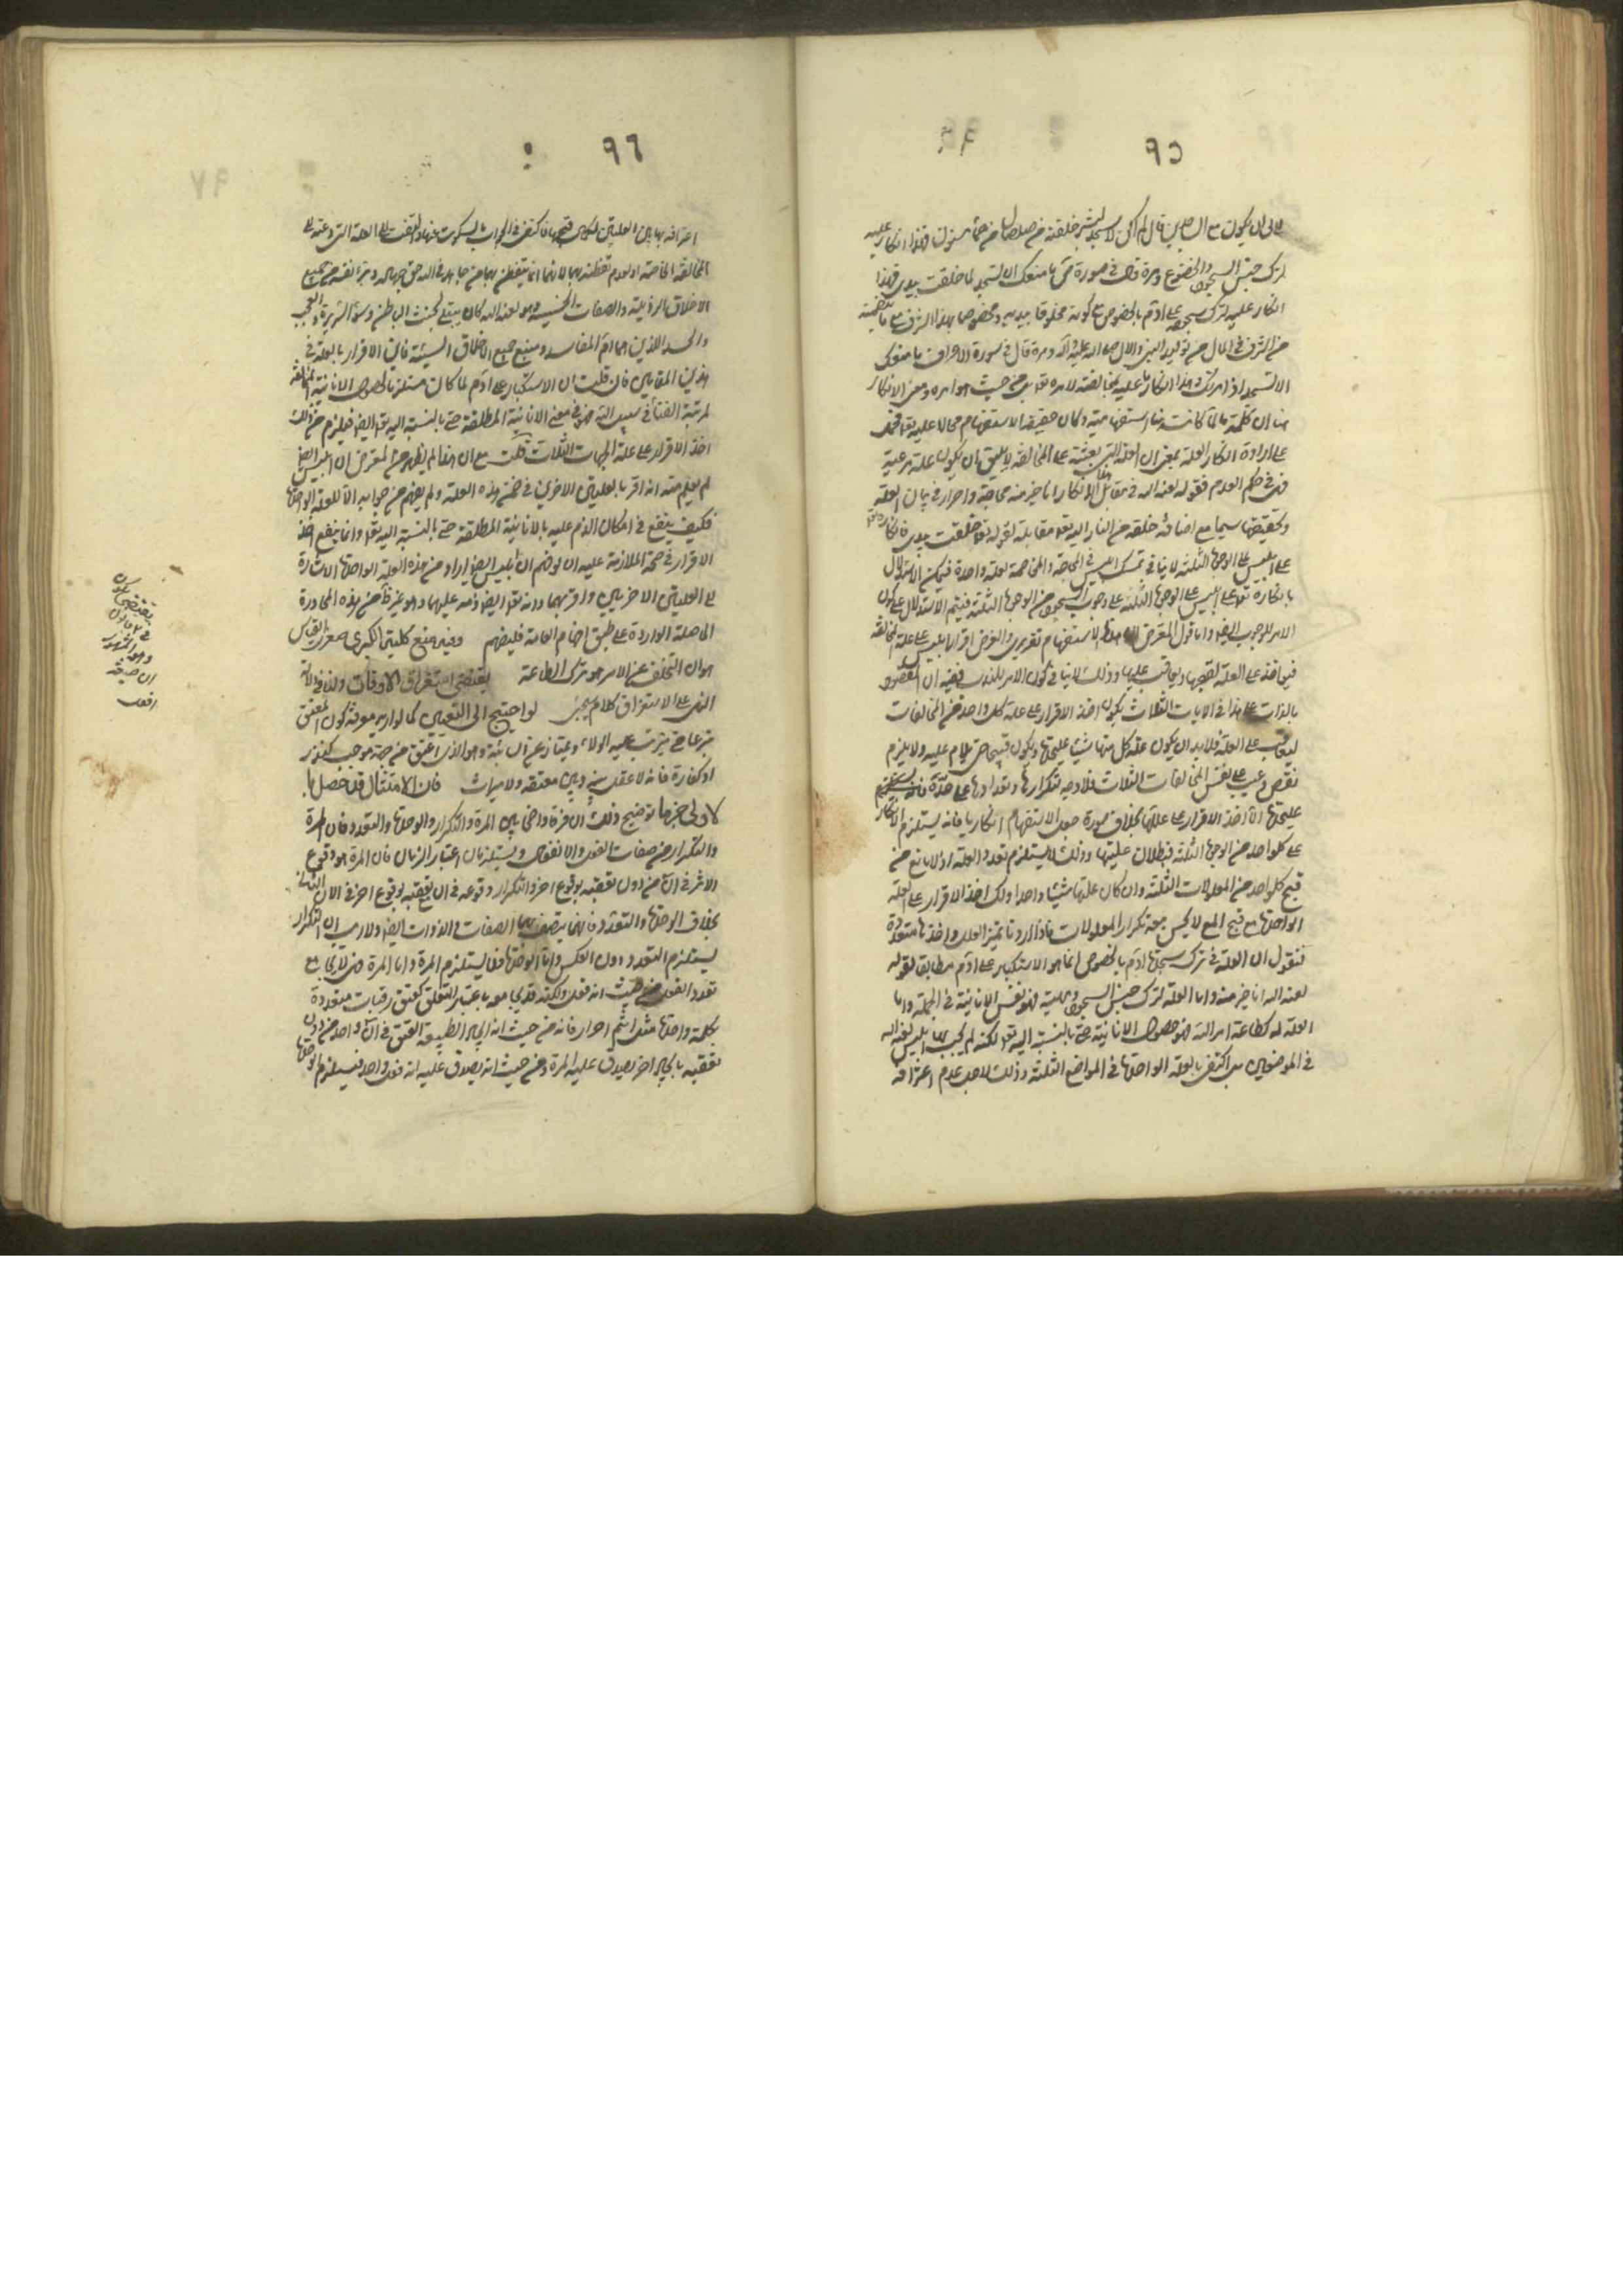 ٩٥
لابى ان يكون مع الساجدين قال لم اكن لاسجد لبشر خلقته من صلصال من حمأ مسنون فهذا انكار عليه
لترك جنس السجود والخضوع ومرة قال فى صورة ص ما منعك ان لا تسجد لما خلقت بيدى فهذا
انكار عليه لترك سجدة على ادم بالخصوص مع كونه مخلوقا بيديه ومخصوصا بهذا الشرف مع ما
من الشرف فى المال من توليد النبى والال صلى الله عليه وآله ومرة قال فى سورة الاعراف ما منعك
الا تسجد اذ امرتك وهذا انكار عليه لمخالفته لامره تعالى من حيث هو امره ومعنى الانكار
هنا ان كلمة ما لما كانت هنا استفهامية وكان حقيقة الاستفهام محالا عليه تعالى
على ارادة انكار العلة بمعنى ان العلة التى بعثته على المخالفة لا يليق بان يكون علة
فهى فى حكم العدم فقوله لعنه الله فى مقابل الانكار انا خير منه محاجة واصرار فى بيان العلة
وتحقيقها سيما مع اضافة خلقه من النار اليه تعالى مقابلة لقوله تعالى خلقت بيدى فانكاره
على ابليس على الوجوه الثلثة لا ينافى تمسك ابليس فى المحاجة والمخاصمة بعلة واحدة فيمكن الاستدلال
بانكاره تعالى على ابليس على الوجوه الثلثة على وجوب السجود من الوجوه الثلثة فيتم الاستدلال على كون
الامر للوجوب ايضا واما قول المعترض الاستفهام تقريرى والغرض اقرار ابليس على علة المخالفة
فيؤاخذ على العلة لقبحها ويعاقب عليها وذلك لا ينافى كون الامر للندب ففيه ان المقصود
بالذات على هذا فى الايات الثلاث يكون اخذ الاقرار على علة كل واحد من المخالفات
ليعاقب على العلة فلا بد ان يكون علة كل منها شيئا عليحدة ويكون قبيحا حتى يلام عليه ولا يلزم
نقص وعيب على نفس المخالفات الثلاث فلا وجه لتكرارها وتعدادها على حدة
عليحدة الا اخذ الاقرار على عللها بخلاف صورة جعل الاستفهام انكاريا فانه يستلزم الانكار
على كل واحد من الوجوه الثلثة فبطلان عليتها وذلك لا يستلزم تعدد العلة اذ لا مانع من
قبح كل واحد من المعلولات الثلثة وان كان علتها شيئا واحدا ولكن اخذ الاقرار على العلة
الواحدة مع قبح لا يحسن معه تكرار المعلولات فاذا اردنا تميز العلل واخذها متعددة
فنقول ان العلة فى ترك سجدة ادم بالخصوص انما هو الاستكبار على ادم مطابق لقوله
لعنه الله انا خير منه واما العلة لترك جنس السجود فهو نفس الانانية فى الجملة واما
العلة لمخالفة امر الله فهو خصوص الانانية حتى بالنسبة اليه تعالى لكنه لم يجب بها ابليس لعنه الله
فى الموضعين بل اكتفى بالعلة الواحدة فى المواضع الثلثة وذلك لاجل عدم اعترافه
٩٦
اعترافه بهاتين العلتين لكون قبحهما فاكتفى فى الجواب بالسكوت عنها والتفت الى العلة التى دعته الى
المخالفة الخاصة او لعدم تفطنه بهما لانهما انما يتفطن بهما من جاهد فى الله حق جهاده وميز نفسه من جميع
الاخلاق الرذيلة والصفات الخسيسة وهو لعنه الله كان مبتلى بخبث الباطن وسوء السريرة والعجب
والحسد اللذين هما ام المفاسد ومنبع جميع الاخلاق السيئة فاين الاقرار بالعلة فى
هذين المقامين فان قلت ان الاستكبار على ادم لما كان مستلزما لحصول الانانية المخالفة
لمرتبة الفناء فى سبيل الله فهو فى معنى الانانية المطلقة حتى بالنسبة اليه تعالى ايضا فيلزم من ذلك
اخذ الاقرار على علة الجهات الثلاث قلت مع ان هذا لم يظهر من المعترض ان ابليس ايضا
لم يعلم منه انه اقر بالعلتين الاخريين فى ضمن هذه العلة ولم يفهم من جوابه الا العلة الواحدة
فكيف ينفع فى امكان الذم عليه بالانانية المطلقة حتى بالنسبة اليه تعالى وانما ينفع اخذ
الاقرار فى صحة الملازمة عليه ان لو فهم ان ابليس ايضا اراد من هذه العلة الواحدة الاشارة
الى العلتين الاخريين واقر بهما وانه تعالى ايضا ذمه عليهما وهو غير ظاهر من هذه المحاورة
الحاصلة الواردة على طبق افهام العامة فليفهم وفيه منع كلية الكبرى صغرى القياس
هو ان التخلف عن الامر هو ترك الطاعة يقتضى استغراق الاوقات ولنا فى دلالة
النهى على الاستغراق كلام يجئ لو احتيج الى التعيين كما لو اريد معرفة كون المعتق
متبرعا حتى يترتب عليه الولاء ويمتاز عن السائبة وهو الذى اعتق من جهة موجب كنذر
او كفارة فانه لا عقل بينه وبين معتقه ولا ميراث فان الامتثال قد حصل بها
لاولى جزما توضيح ذلك ان فرقا واضحا بين المرة والتكرار والوحدة والتعدد فان المرة
والتكرار من صفات الفعل والانفعال ويستلزمان اعتبار الزمان فان المرة هو وقوع
الاثر فى آن من دون تعقبه بوقوع اخر والتكرار وقوعه فى آن مع تعقبه بوقوع اخر فى الان
بخلاف الوحدة والتعدد فانهما يتصف بهما الصفات والذوات ايضا ولا ريب ان التكرار
يستلزم التعدد دون العكس واما الوحدة فلا يستلزم المرة واما المرة فهى قد يجامع
تعدد الفعل من حيث انه فعل ولكنه قد يجامعه باعتبار التعلق كعتق رقبات متعددة
بكلمة واحدة مثل انتم احرار فانه من حيث انه ايجاد لطبيعة العتق فى آن واحد من دون
تعقبه بايجاد اخر يصدق عليه المرة ومن حيث انه يصدق عليه انه فعل واحد فيستلزم الوحدة
يقتضى
وهو
ان صيغة
افعل